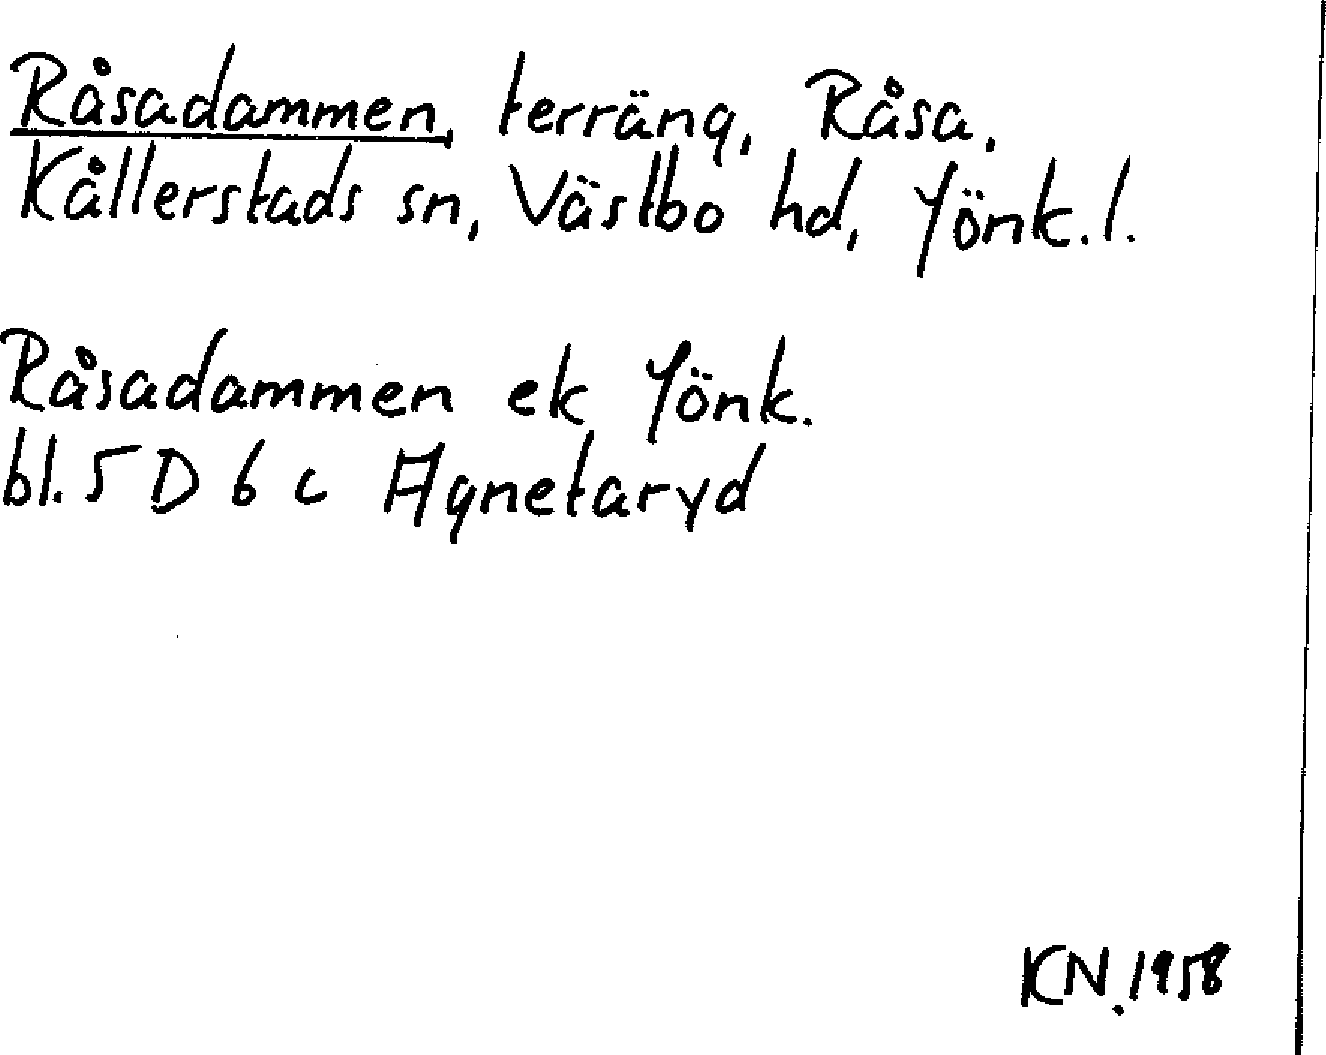 Råsadammen, terräng, Råsa,
Kållerstads sn, Västbo hd, Jönk. l.
Råsadammen ek Jönk.
bl. 5 D 6 c Agnetaryd
KN. 1958